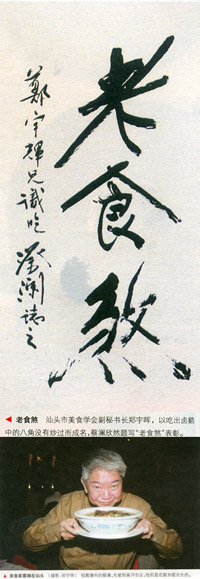 老食煞
鄭宇輝兄識吃
蔡瀾誌之
◀ 老食煞 汕头市美食学会副秘书长郑宇晖，以吃出卤鹅
中的八角没有炒过而成名，蔡澜欣然题写“老食煞”表彰。